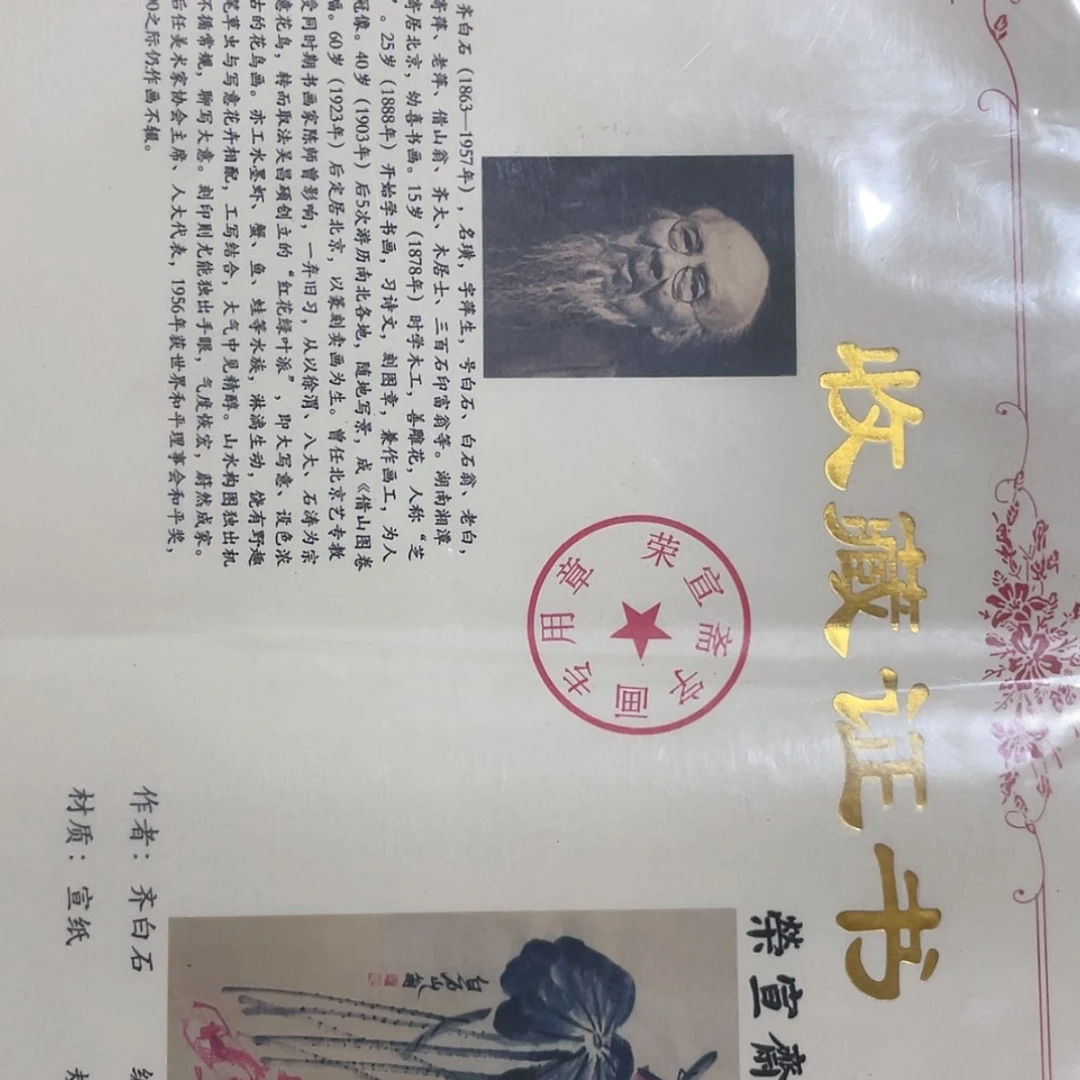 收藏证书
齐白石(1863—1957年),名璜,字萍生,号白石、白石翁、老白,
寄萍、老萍、借山翁、齐大、木居士、三百石印富翁等。湖南湘潭
寄居北京,幼喜书画。15岁(1878年)时学木工,善雕花,人称“芝
”。25岁(1888年)开始学书画,习诗文,刻图章,兼作画工,为人
冠像。40岁(1903年)后5次游历南北各地,随地写景,成《借山图卷
幅。60岁(1923年)后定居北京,以篆刻卖画为生。曾任北京艺专教
受同时期书画家陈师曾影响,一弃旧习,从以徐渭、八大、石涛为宗
意花鸟,转而取法吴昌硕创立的“红花绿叶派”,即大写意、设色浓
古的花鸟画。亦工水墨虾、蟹、鱼、蛙等水族,淋漓生动,饶有野趣
笔草虫与写意花卉相配,工写结合,大气中见精醇。山水构图独出机
不循常规,聊写大意。刻印则尤能独出手眼,气度恢宏,蔚然成家。
后任美术家协会主席、人大代表,1956年获世界和平理事会和平奖,
之际仍作画不辍。
荣宣斋字画专用章
榮宣齋
白石山翁
作者:齐白石
材质:宣纸